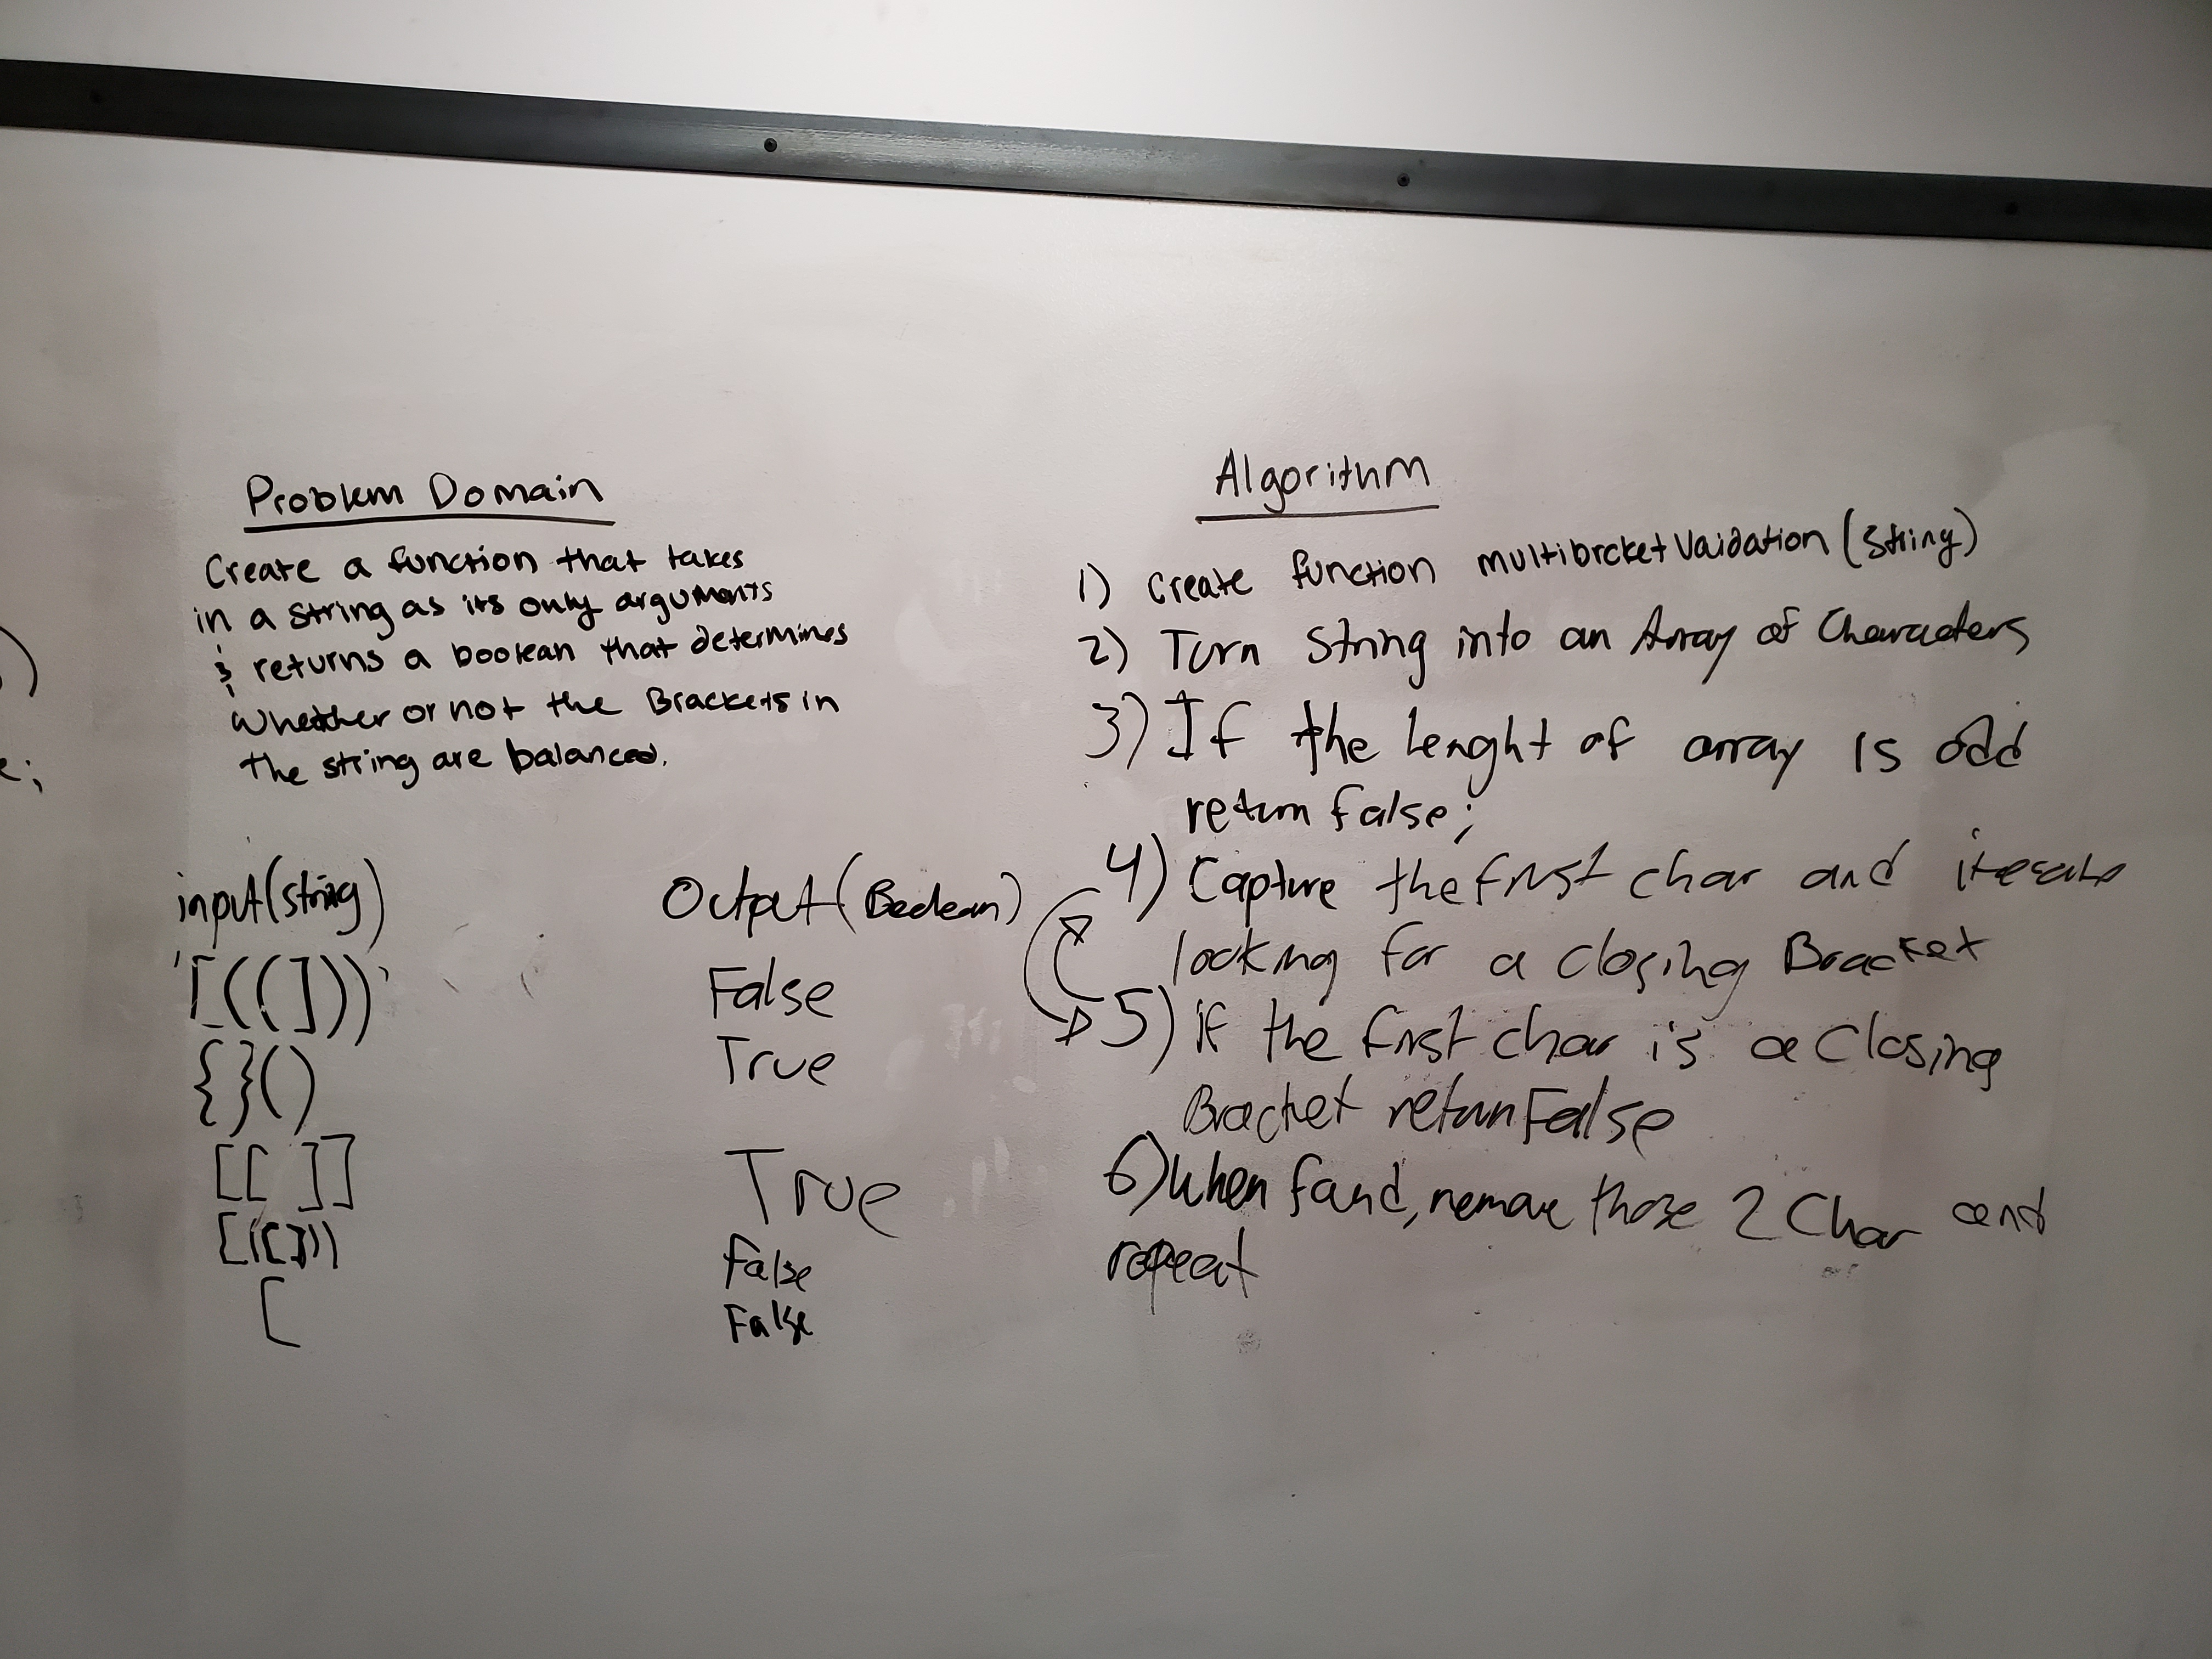 )
e;
Problem Domain
Create a function that takes
in a string as its only arguments
& returns a boolean that determines
whether or not the Brackets in
the string are balanced.
input(string)
Output(Boolean)
'[((]))'
False
{}()
True
[[ ]]
True
[([]))
False
[
False
Algorithm
1) Create function multibrcketVaidation(string)
2) Turn String into an Array of Characters
3) If the lenght of array is odd
return false;
4) Capture the first char and iterate
looking for a closing Bracket
5) if the first char is a Closing
Bracket return False
6) when found, remove those 2 Char and
repeat